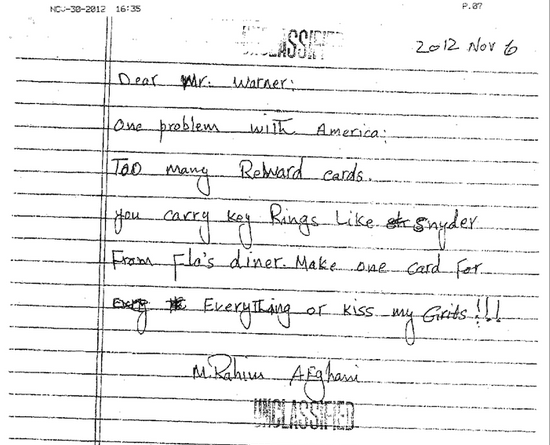 NOV-30-2012 16:35 P.07
UNCLASSIFIED
2012 Nov 6
Dear Mr. Warner:
One problem with America:
Too many Reward cards.
you carry key Rings Like Snyder
From Flo's diner. Make one card For
Everything or kiss my Grits!!!
M. Rahim Afghani
UNCLASSIFIED